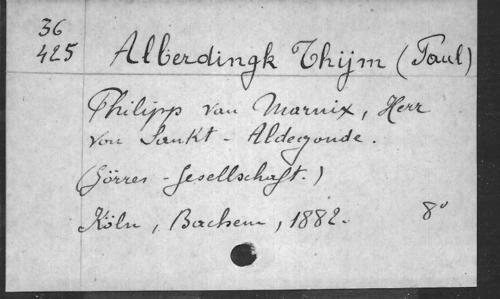 36
425
Alberdingk Thijm (Paul)
Philipp van Marnix, Herr
von Sankt-Aldegonde.
(Görres-Gesellschaft.)
Köln, Bachem, 1882. 8°